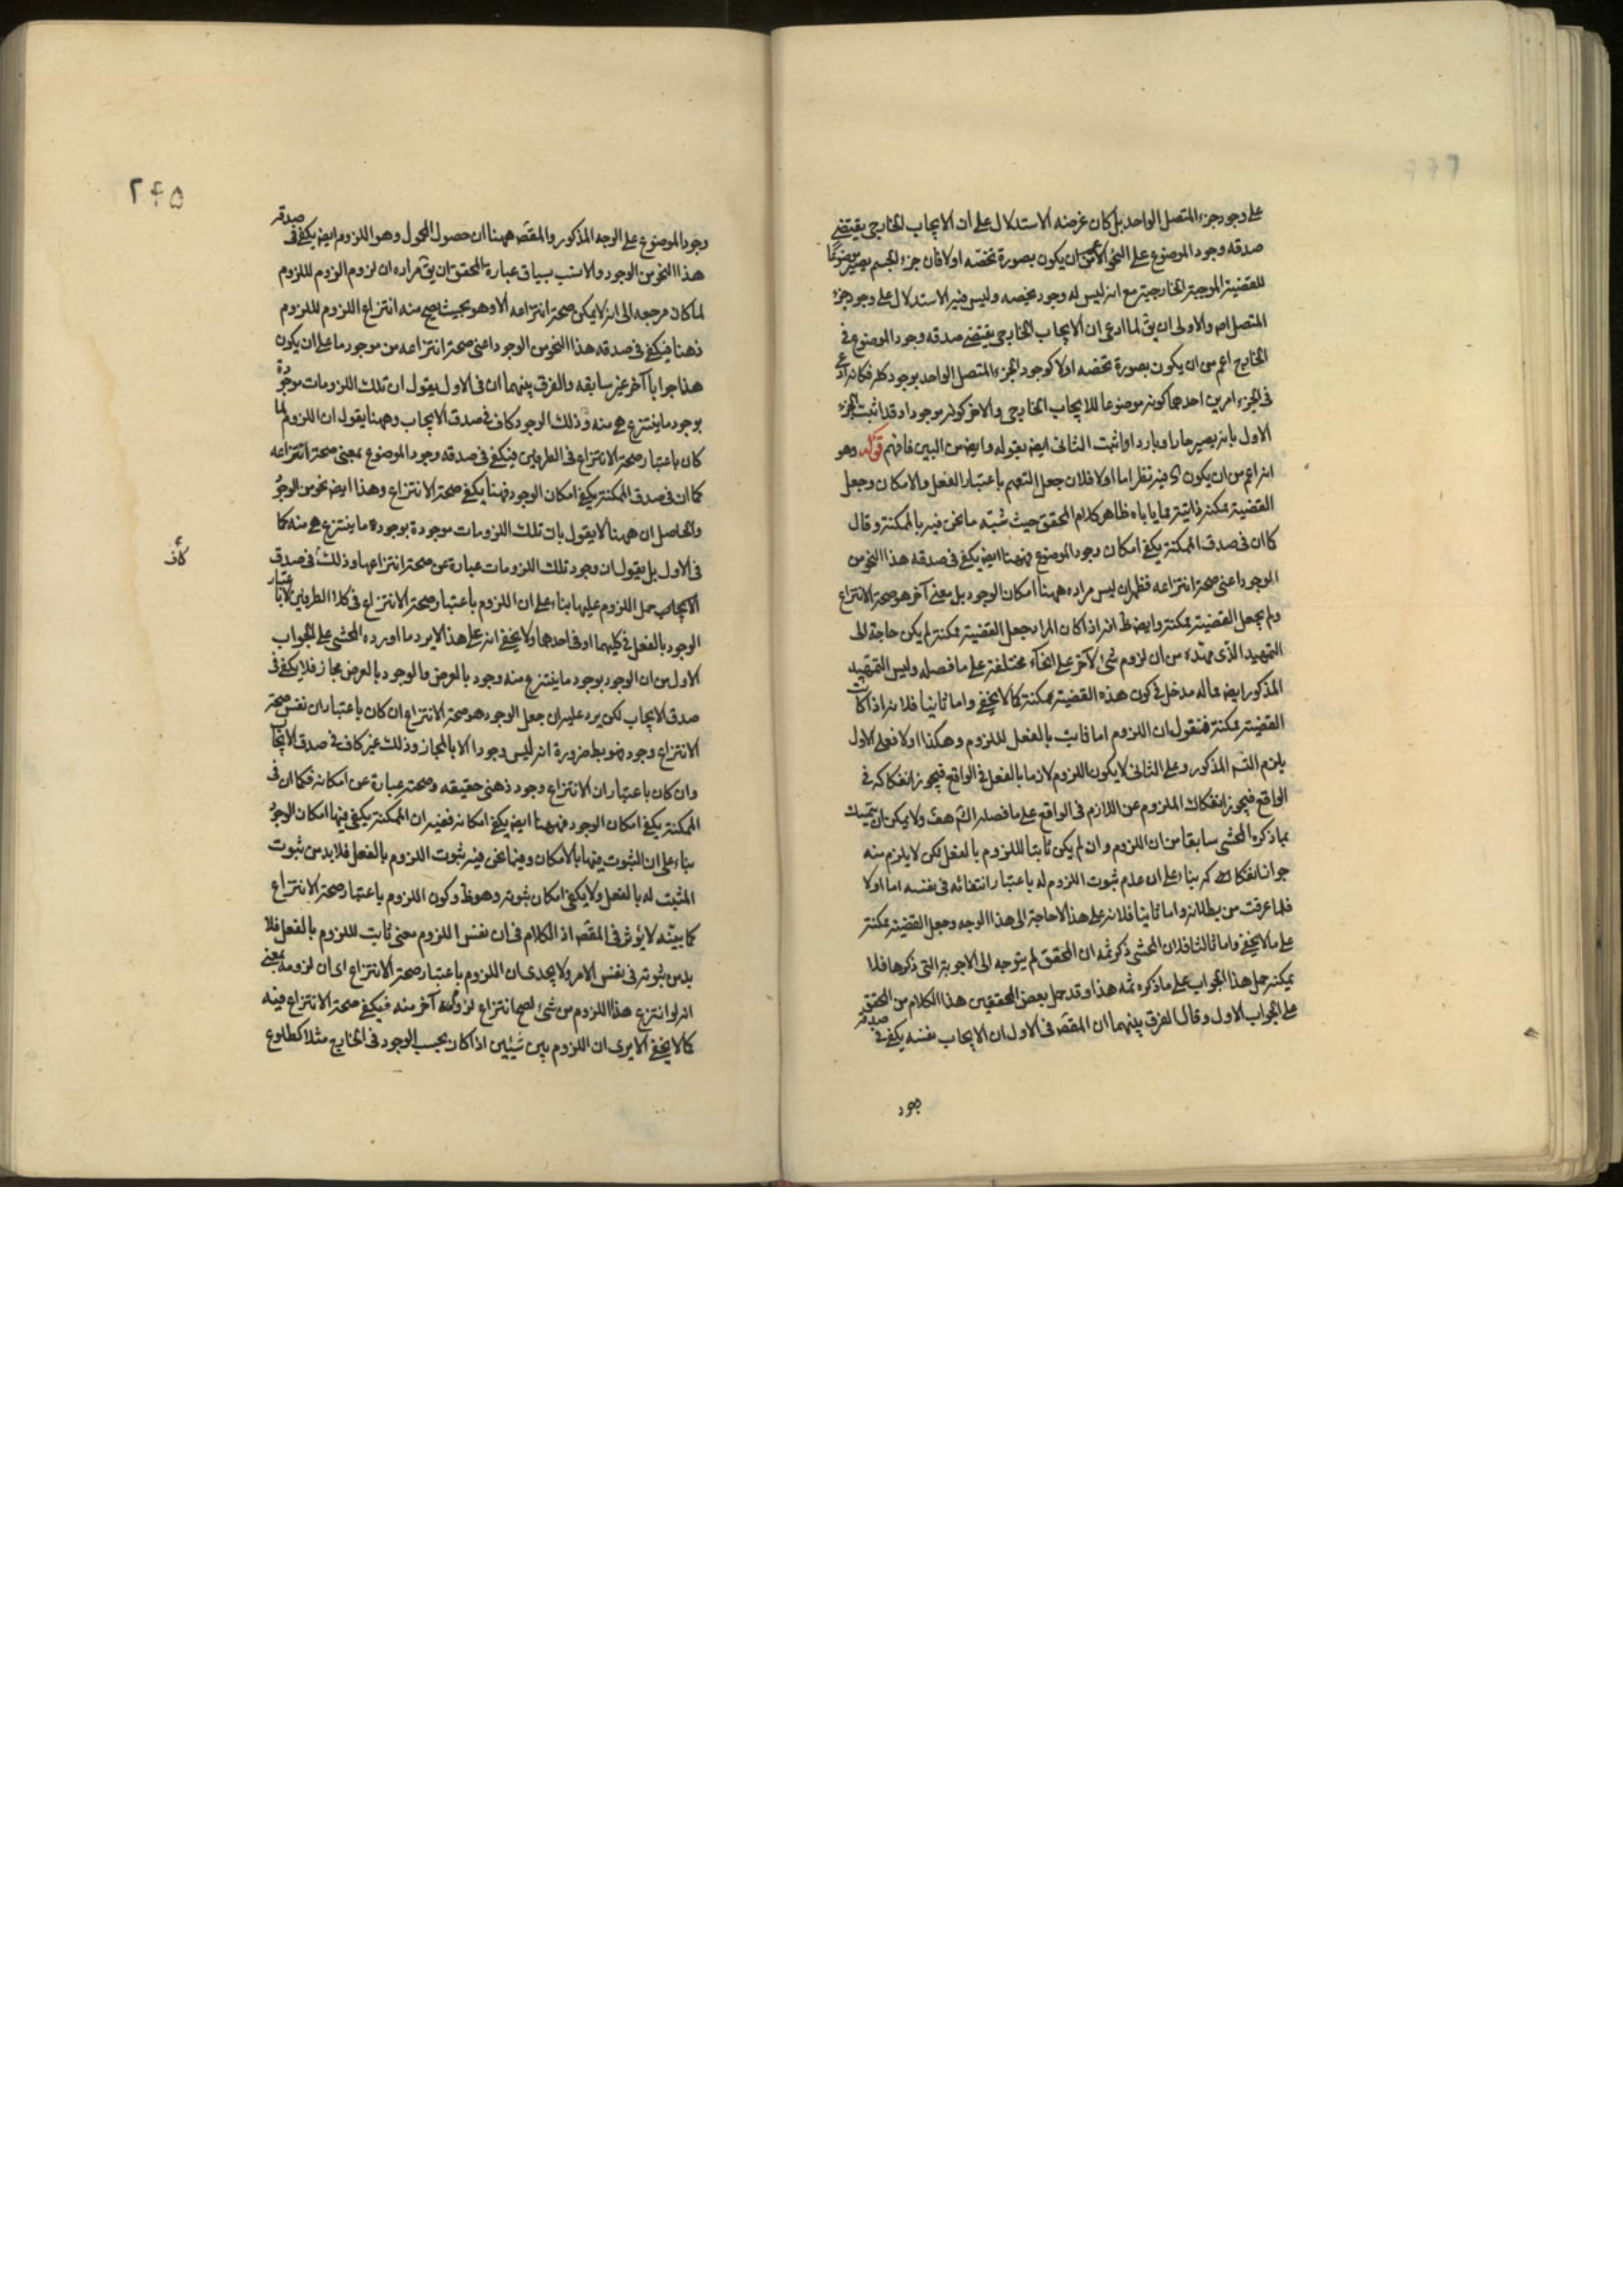 على وجود جزء المتصل الواحد بل كان غرضه الاستدلال على ان الايجاب الخارجى يقتضى
صدقه وجود الموضوع على النحو الاعم من ان يكون بصورة تخصه اولا فان جزء الجسم يصير موضوعا
للقضية الموجبة الخارجية مع انه ليس له وجود يخصه وليس فيه الاستدلال على وجود جزء
المتصل اه والاولى ان يق لما ادعى ان الايجاب الخارجى يقتضى صدقه وجود الموضوع فى
الخارج اعم من ان يكون بصورة تخصه اولا كوجود الجزء المتصل الواحد بوجود كله فكانه ادعى
فى الجزء امرين احدهما كونه موضوعا للايجاب الخارجى والاخر كونه موجودا وقد اثبت الجزء
الاول بانه يصير حارا وباردا واثبت الثانى ايض بقوله وايض من البين فافهم قوله وهو
انه اعم من ان يكون اه فيه نظر اما اولا فلان جعل التعميم باعتبار الفعل والامكان وجعل
القضية ممكنة ذاتية مما ياباه ظاهر كلام المحقق حيث شبه ما نحن فيه بالممكنة وقال
كما ان فى صدق الممكنة يكفى امكان وجود الموضوع فههنا ايض يكفى فى صدقه هذا النحو من
الوجود اعنى صحة انتزاعه فظهر ان ليس مراده ههنا امكان الوجود بل معنى آخر هو صحة الانتزاع
ولم يجعل القضية ممكنة وايض ظ انه اذا كان المراد جعل القضية ممكنة لم يكن حاجة الى
التمهيد الذى مهده من ان لزوم شئ لآخر على انحاء مختلفة على ما فصله وليس التمهيد
المذكور ايض مما له مدخل فى كون هذه القضية ممكنة كما لا يخفى واما ثانيا فلانه اذا كانت
القضية ممكنة فنقول ان اللزوم اما ثابت بالفعل لللزوم وهكذا اولا فعلى الاول
يلزم التسه المذكور وعلى الثانى لا يكون اللزوم لازما بالفعل فى الواقع فيجوز انفكاكه فى
الواقع فيجوز انفكاك الملزوم عن اللازم فى الواقع على ما فصله الش هف ولا يمكن ان يتمسك
بما ذكره المحشى سابقا من ان اللزوم وان لم يكن ثابتا لللزوم بالفعل لكن لا يلزم منه
جواز انفكاكه بناء على ان عدم ثبوت اللزوم له باعتبار انتفائه فى نفسه اما اولا
فلما عرفت من بطلانه واما ثانيا فلانه على هذا لا حاجة الى هذا الوجه وجعل القضية ممكنة
على ما لا يخفى واما ثالثا فلان المحشى ذكر ثمه ان المحقق لم يتوجه الى الاجوبة التى ذكرها فلا
يمكنه حمل هذا الجواب على ما ذكره ثمه هذا وقد حمل بعض المحققين هذا الكلام من المحقق
على الجواب الاول وقال الفرق بينهما ان المقصد فى الاول ان الايجاب نفسه يكفى فى صدقه
وجود
٢۴۵
وجود الموضوع على الوجه المذكور والمقصد ههنا ان حصول المحمول وهو اللزوم ايض يكفى فى صدقه
هذا النحو من الوجود والانسب بسياق عبارة المحقق ان يق مراده ان لزوم اللزوم لللزوم
لما كان مرجعه الى انه لا يمكن صحة انتزاعه الا وهو بحيث يصح منه انتزاع اللزوم لللزوم
ذهنا فيكفى فى صدقه هذا النحو من الوجود اعنى صحة انتزاعه من موجود ما على ان يكون
هذا جوابا آخر غير سابقه والفرق بينهما ان فى الاول يقول ان تلك اللزومات موجودة
بوجود ما ينتزع هى منه وذلك الوجود كاف فى صدق الايجاب وههنا يقول ان اللزوم لما
كان باعتبار صحة الانتزاع فى الطرفين فيكفى فى صدقه وجود الموضوع بمعنى صحة انتزاعه
كما ان فى صدق الممكنة يكفى امكان الوجود فههنا يكفى صحة الانتزاع وهذا ايض نحو من الوجود
والحاصل ان ههنا لا يقول بان تلك اللزومات موجودة بوجود ما ينتزع هى منه كما
فى الاول بل يقول ان وجود تلك اللزومات عبارة عن صحة انتزاعها وذلك فى صدق
كاف
الايجاب حمل اللزوم عليها بناء على ان اللزوم باعتبار صحة الانتزاع فى كلا الطرفين لا باعتبار
الوجود بالفعل فى كليهما او فى احدهما ولا يخفى انه على هذا لا يرد ما اورده المحشى على الجواب
الاول من ان الوجود بوجود ما ينتزع منه وجود بالعرض والوجود بالعرض مجاز فلا يكفى فى
صدق الايجاب لكن يرد عليه ان جعل الوجود هو صحة الانتزاع ان كان باعتبار ان نفس صحة
الانتزاع وجود فهو بط ضرورة انه ليس وجودا الا بالمجاز وذلك غير كاف فى صدق الايجاب
وان كان باعتبار ان الانتزاع وجود ذهنى حقيقه وصحته عبارة عن امكانه فكما ان فى
الممكنة يكفى امكان الوجود فههنا ايض يكفى امكانه ففيه ان الممكنة يكفى فيها امكان الوجود
بناء على ان الثبوت فيها بالامكان وفيما نحن فيه ثبوت اللزوم بالفعل فلا بد من ثبوت
المثبت له بالفعل ولا يكفى امكان ثبوته وهو ظ وكون اللزوم باعتبار صحة الانتزاع
كما بينه لا يؤثر فى المقصد اذ الكلام فى ان نفس اللزوم معنى ثابت لللزوم بالفعل فلا
بد من ثبوته فى نفس الامر ولا يجدى ان اللزوم باعتبار صحة الانتزاع اى ان لزومه بمعنى
انه لو انتزع هذا اللزوم من شئ لصح انتزاع لزوم آخر منه فيكفى صحة الانتزاع فيه
كما لا يخفى الا يرى ان اللزوم بين شيئين اذا كان بحسب الوجود فى الخارج مثلا كطلوع